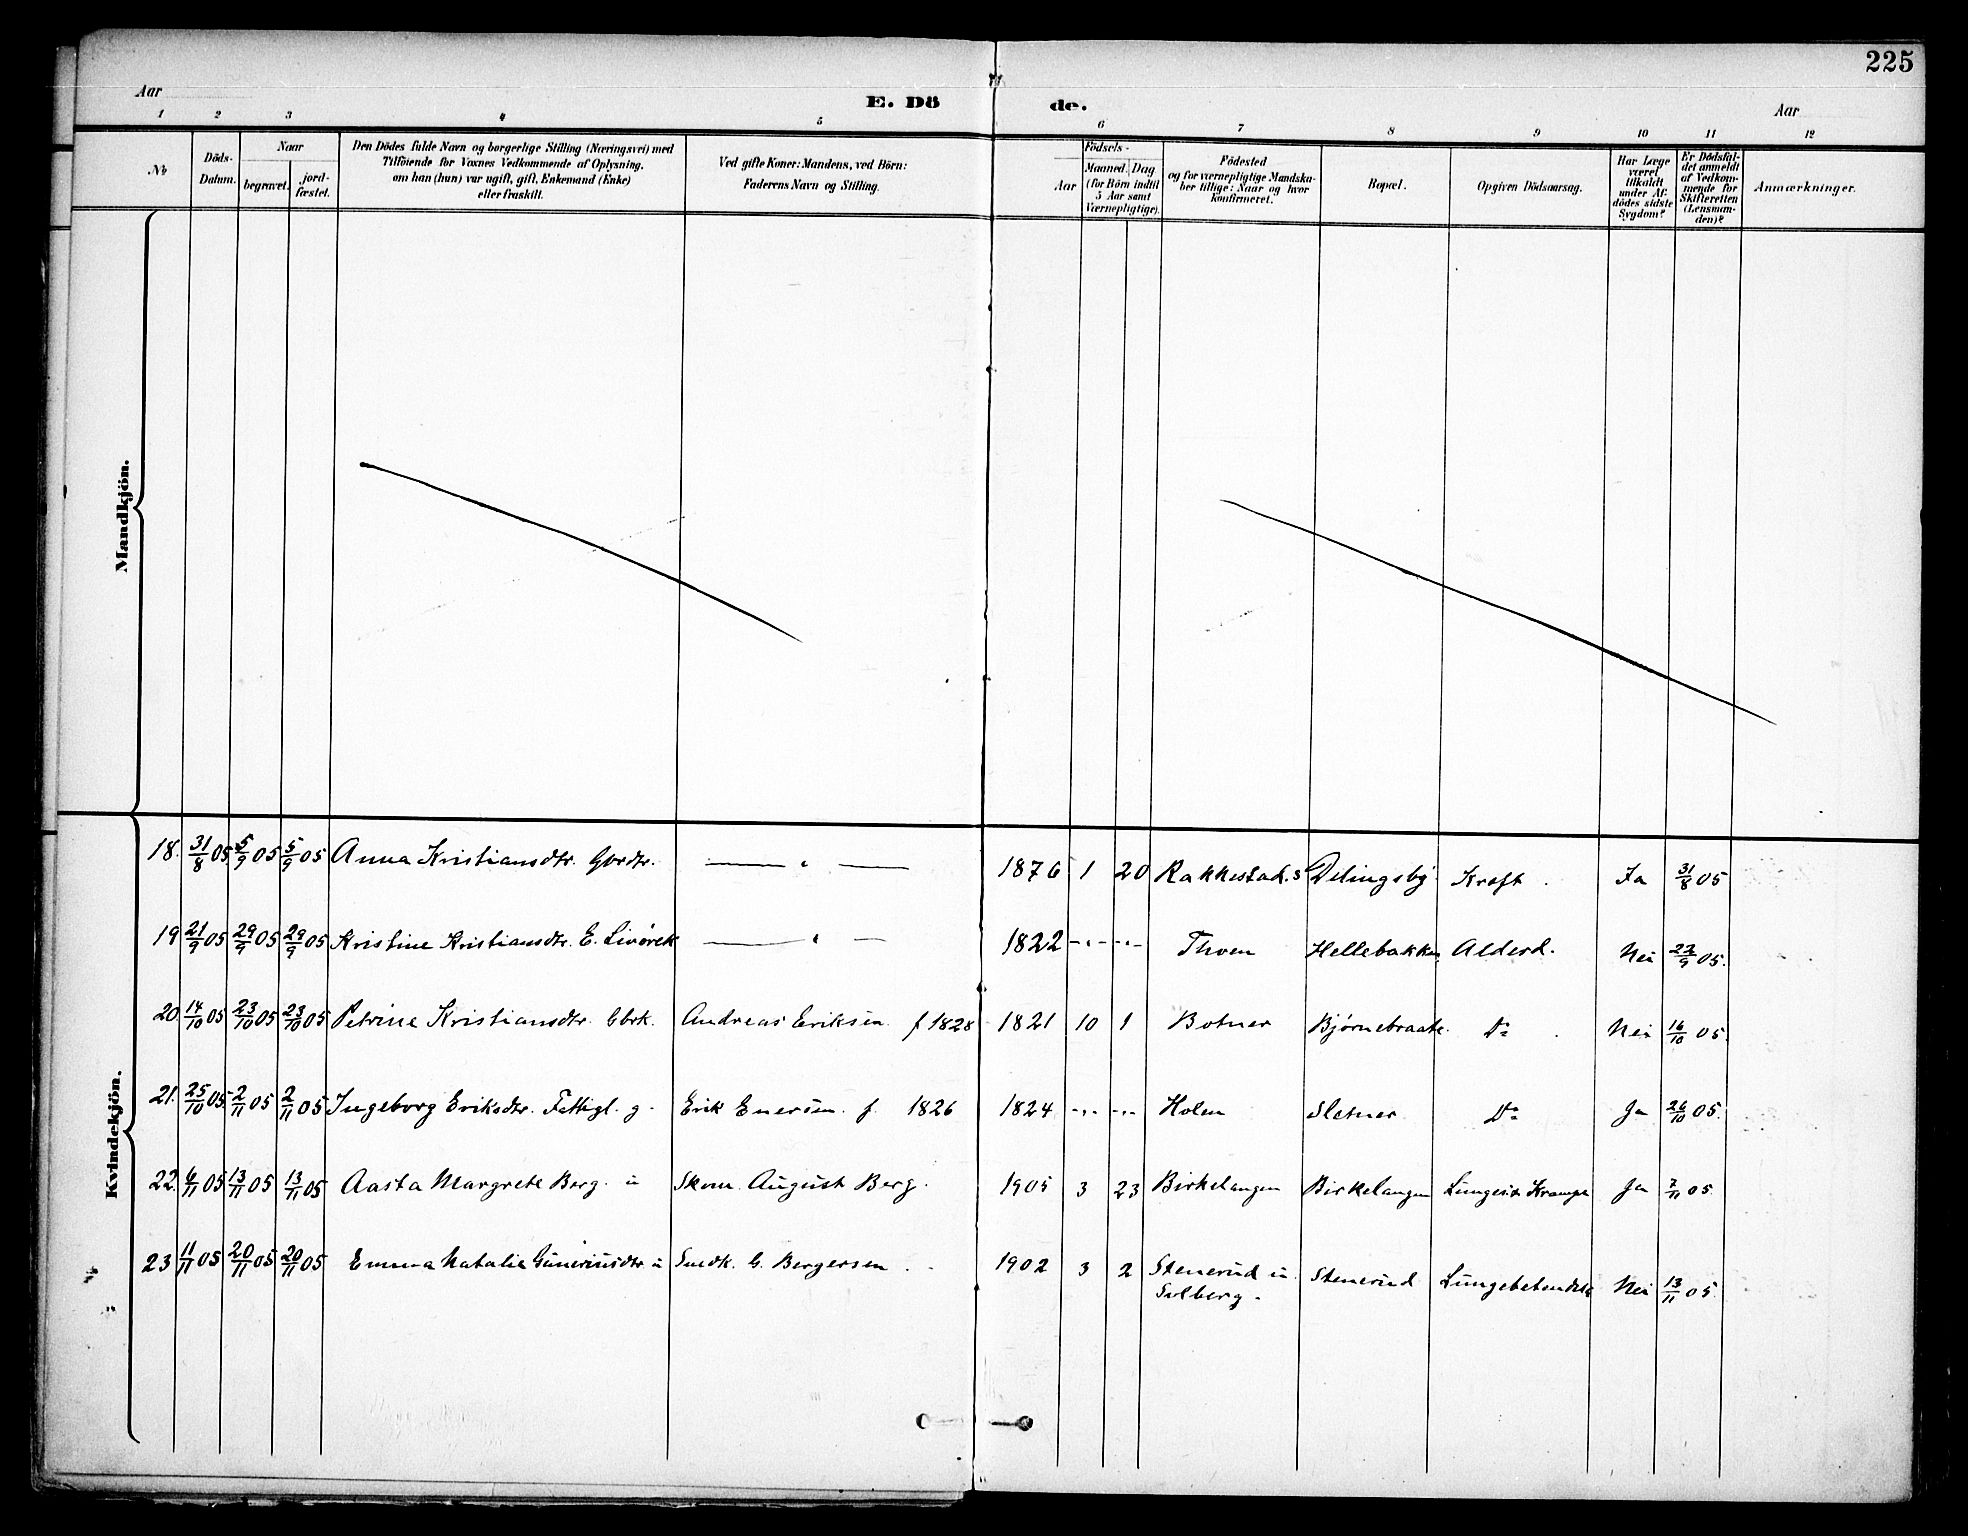 225
Aar
E. Dö
de.
Aar
1 2 3 4 5 6 7 8 9 10 11 12
No
Döds-
Datum.
Naar
begravet.
jord-
fæstet.
Den Dödes fulde Navn og borgerlige Stilling (Næringsvei) med
Tilföiende for Voxnes Vedkommende af Oplysning,
om han (hun) var ugift, gift, Enkemand (Enke)
eller fraskilt.
Ved gifte Koner: Mandens, ved Börn:
Faderens Navn og Stilling.
Födsels-
Aar
Maaned. Dag
(for Börn indtil
5 Aar samt
Værnepligtige).
Födested
og for værnepligtige Mandska-
ber tillige: Naar og hvor
konfirmeret.
Bopæl.
Opgiven Dödsaarsag.
Har Læge
været
tilkaldt
under Af-
dödes sidste
Sygdom?
Er Dödsfal-
det anmeldt
af Vedkom-
mende for
Skifteretten
(Lensman-
den)?
Anmærkninger.
Mandkjön.
Kvindekjön.
18. 31/8 05. 5/9 05 5/9 05 Anna Kristiansdtr. Gordtr. — " — 1876 1 20 Rakkestad.s Delingsby Kræft. Ja 31/8 05
19 21/9 05 29/9 05 29/9 05 Kristine Kristiansdtr. E. Livørek — " — 1822 -"- -"- Thoen Hellebakken Aldersd. Nei 23/9 05.
20. 14/10 05 23/10 05 23/10 05 Petrine Kristiansdtr. Gbrk. Andreas Eriksen f 1828 1821 10 1 Botner Bjørnebraate. Do. Nei 16/10 05.
21. 25/10 05 2/11 05 2/11 05 Ingeborg Eriksdtr. Fattigl. g. Erik Enersen. f. 1826 1824 -"- -"- Holen Sletner Do Ja 26/10 05.
22. 6/11 05 13/11 05 13/11 05 Aasta Margrete Berg. u Skom. August Berg. 1905 3 23 Birkelangen Birkelangen Krampe Ja 7/11 05.
23 11/11 05 20/11 05 20/11 05 Emma Natalie Guneriusdtr u Snedk. G. Bergersen. 1902 3 2 Stenerud u. Stenerud Lungebetendelse Nei 13/11 05.
Solberg.